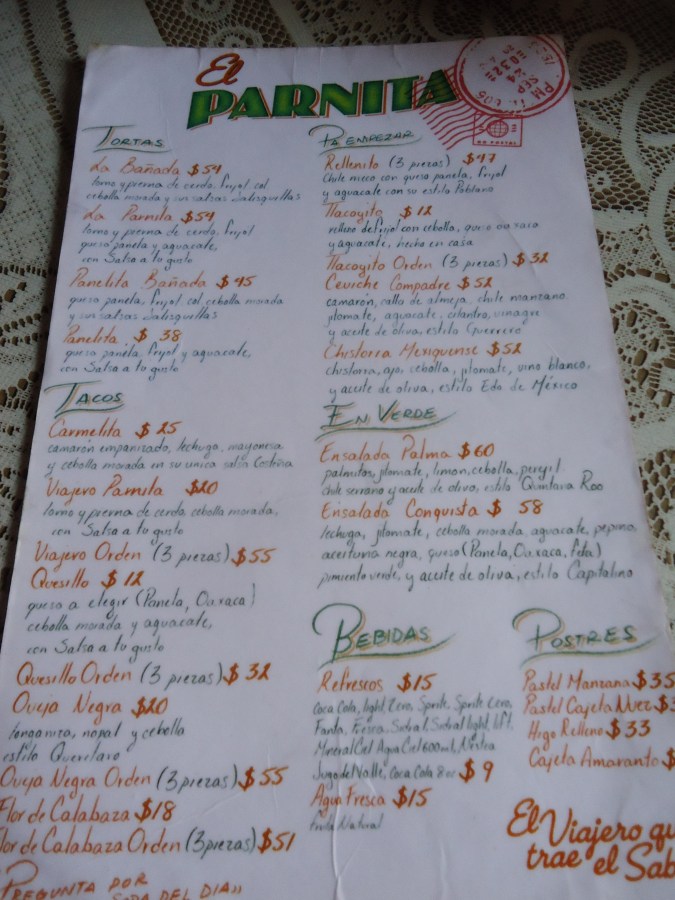 El
PARNITA
TORTAS
La Bañada $54
lomo y pierna de cerdo, frijol, col
cebolla morada y sus salsas
La Parnita $54
lomo y pierna de cerdo, frijol
queso panela y aguacate,
con Salsa a tu gusto
Panelita Bañada $45
queso panela, frijol, col, cebolla morada
y sus salsas
Panelita $38
queso panela, frijol y aguacate,
con Salsa a tu gusto
TACOS
Carmelita $25
camarón empanizado, lechuga, mayonesa
y cebolla morada en su unica salsa Costeña
Viajero Parnita $20
lomo y pierna de cerdo, cebolla morada,
con Salsa a tu gusto
Viajero Orden (3 piezas) $55
Quesillo $12
queso a elegir (Panela, Oaxaca)
cebolla morada y aguacate,
con Salsa a tu gusto
Quesillo Orden (3 piezas) $32
Oveja Negra $20
longaniza, nopal y cebolla
estilo Queretaro
Oveja Negra Orden (3 piezas) $55
Flor de Calabaza $18
Flor de Calabaza Orden (3 piezas) $51
PREGUNTA POR
SOPA DEL DIA
PA EMPEZAR
Rellenito (3 piezas) $47
Chile meco con queso panela, frijol
y aguacate con su estilo Poblano
Tlacoyito $12
relleno de frijol con cebolla, queso oaxaca
y aguacate, hecho en casa
Tlacoyito Orden (3 piezas) $32
Ceviche Compadre $52
camarón, callo de almeja, chile manzano,
jitomate, aguacate, cilantro, vinagre
y aceite de oliva, estilo Guerrero
Chistorra Mexiquense $52
chistorra, ajo, cebolla, jitomate, vino blanco,
y aceite de oliva, estilo Edo de México
EN VERDE
Ensalada Palma $60
palmitos, jitomate, limon, cebolla, perejil
chile serrano y aceite de oliva, estilo Quintana Roo
Ensalada Conquista $58
lechuga, jitomate, cebolla morada, aguacate, pepino,
aceituna negra, queso (Panela, Oaxaca, feta)
pimiento verde, y aceite de oliva, estilo Capitalino
BEBIDAS
Refrescos $15
Coca Cola, light, Zero, Sprite, Sprite Zero,
Fanta, Fresca, Sidral, Sidral light, lift,
Mineral Ciel, Agua Ciel 600ml, Nestea
Jugo del Valle, Coca Cola 8oz $9
Agua Fresca $15
fruta Natural
POSTRES
Pastel Manzana $35
Pastel Cajeta Nuez $3
Higo Relleno $33
Cajeta Amaranto $
El Viajero qu
trae el Sab